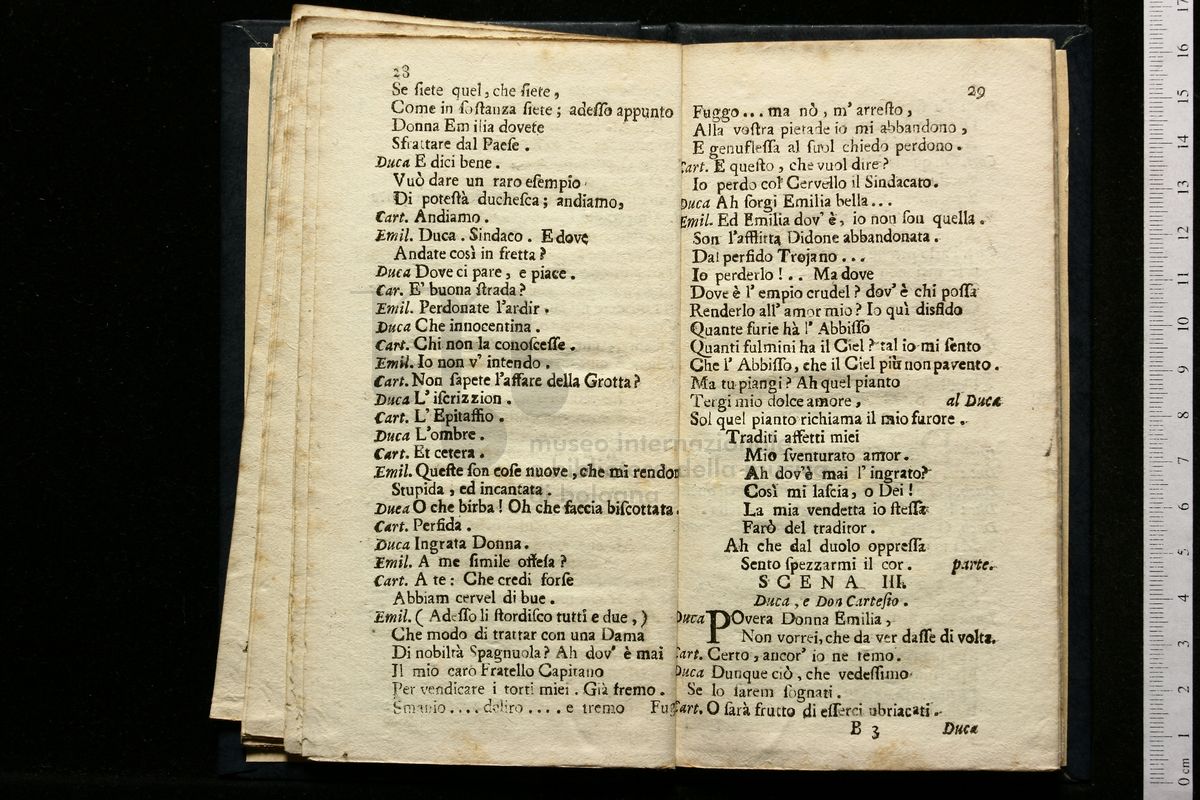 28
Se ſiete quel, che ſiete,
Come in ſoſtanza ſiete; adeſſo appunto
Donna Emilia dovete
Sfrattare dal Paeſe.
Duca E dici bene.
Vuò dare un raro eſempio
Di poteſtà ducheſca; andiamo,
Cart. Andiamo.
Emil. Duca. Sindaco. E dove
Andate così in fretta?
Duca Dove ci pare, e piace.
Car. E' buona ſtrada?
Emil. Perdonate l'ardir.
Duca Che innocentina.
Cart. Chi non la conoſceſſe.
Emil. Io non v' intendo.
Cart. Non ſapete l'affare della Grotta?
Duca L' iſcrizzion.
Cart. L' Epitaffio.
Duca L'ombre.
Cart. Et cetera.
Emil. Queſte ſon coſe nuove, che mi rendon
Stupida, ed incantata.
Duca O che birba! Oh che faccia biſcottata.
Cart. Perfida.
Duca Ingrata Donna.
Emil. A me ſimile offeſa?
Cart. A te: Che credi forſe
Abbiam cervel di bue.
Emil. (Adeſſo li ſtordiſco tutti e due,)
Che modo di trattar con una Dama
Di nobiltà Spagnuola? Ah dov' è mai
Il mio caro Fratello Capitano
Per vendicare i torti miei. Già fremo.
Smanio.... deliro.... e tremo Fug
29
Fuggo... ma nò, m' arreſto,
Alla voſtra pietade io mi abbandono,
E genufleſſa al ſuol chiedo perdono.
Cart. E queſto, che vuol dire?
Io perdo col Cervello il Sindacato.
Duca Ah ſorgi Emilia bella...
Emil. Ed Emilia dov' è, io non ſon quella.
Son l'afflitta Didone abbandonata.
Dal perfido Trojano...
Io perderlo!.. Ma dove
Dove è l' empio crudel? dov' è chi poſſa
Renderlo all' amor mio? Io quì disfido
Quante furie hà l' Abbiſſo
Quanti fulmini ha il Ciel? tal io mi ſento
Che l' Abbiſſo, che il Ciel più non pavento.
Ma tu piangi? Ah quel pianto
Tergi mio dolce amore, al Duca
Sol quel pianto richiama il mio furore.
Traditi affetti miei
Mio ſventurato amor.
Ah dov'è mai l' ingrato?
Così mi laſcia, o Dei!
La mia vendetta io ſteſſa
Farò del traditor.
Ah che dal duolo oppreſſa
Sento ſpezzarmi il cor. parte.
SCENA III.
Duca, e Don Carteſio.
Duca POvera Donna Emilia,
Non vorrei, che da ver daſſe di volta.
Cart. Certo, ancor' io ne temo.
Duca Dunque ciò, che vedeſſimo
Se lo ſarem ſognati.
Cart. O ſarà frutto di eſſerci ubriacati.
B 3 Duca
museo internazionale
della musica
bologna
17
16
15
14
13
12
11
10
9
8
7
6
5
4
3
2
1
0 cm